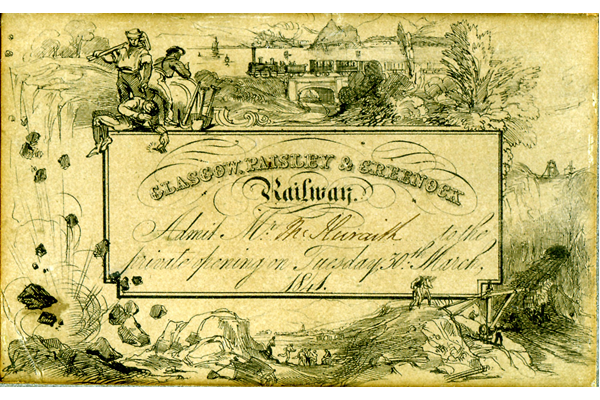 GLASGOW, PAISLEY & GREENOCK
Railway.
Admit Mr. to the
private opening on Tuesday 30th. March,
1841.